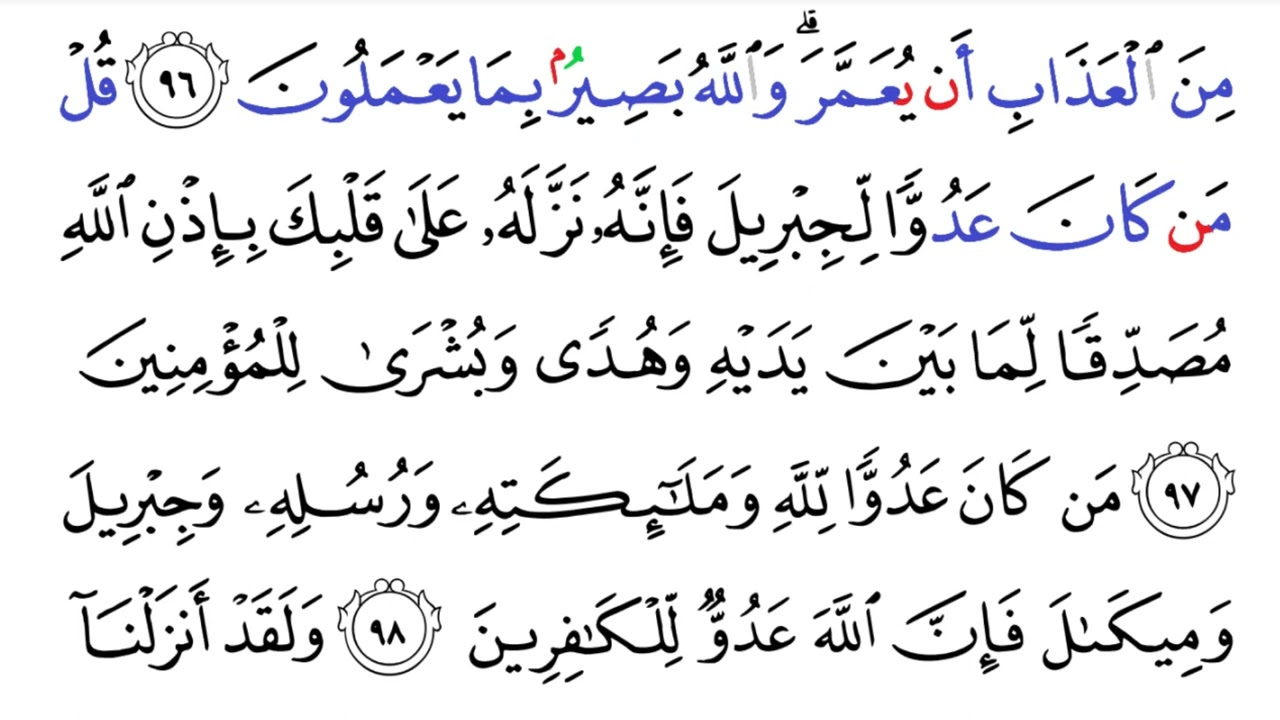 مِنَ ٱلْعَذَابِ أَن يُعَمَّرَ ۗ وَٱللَّهُ بَصِيرٌۢ بِمَا يَعْمَلُونَ ٩٦ قُلْ
مَن كَانَ عَدُوًّا لِّجِبْرِيلَ فَإِنَّهُۥ نَزَّلَهُۥ عَلَىٰ قَلْبِكَ بِإِذْنِ ٱللَّهِ
مُصَدِّقًا لِّمَا بَيْنَ يَدَيْهِ وَهُدًى وَبُشْرَىٰ لِلْمُؤْمِنِينَ
٩٧ مَن كَانَ عَدُوًّا لِّلَّهِ وَمَلَـٰٓئِكَتِهِۦ وَرُسُلِهِۦ وَجِبْرِيلَ
وَمِيكَىٰلَ فَإِنَّ ٱللَّهَ عَدُوٌّ لِّلْكَـٰفِرِينَ ٩٨ وَلَقَدْ أَنزَلْنَآ